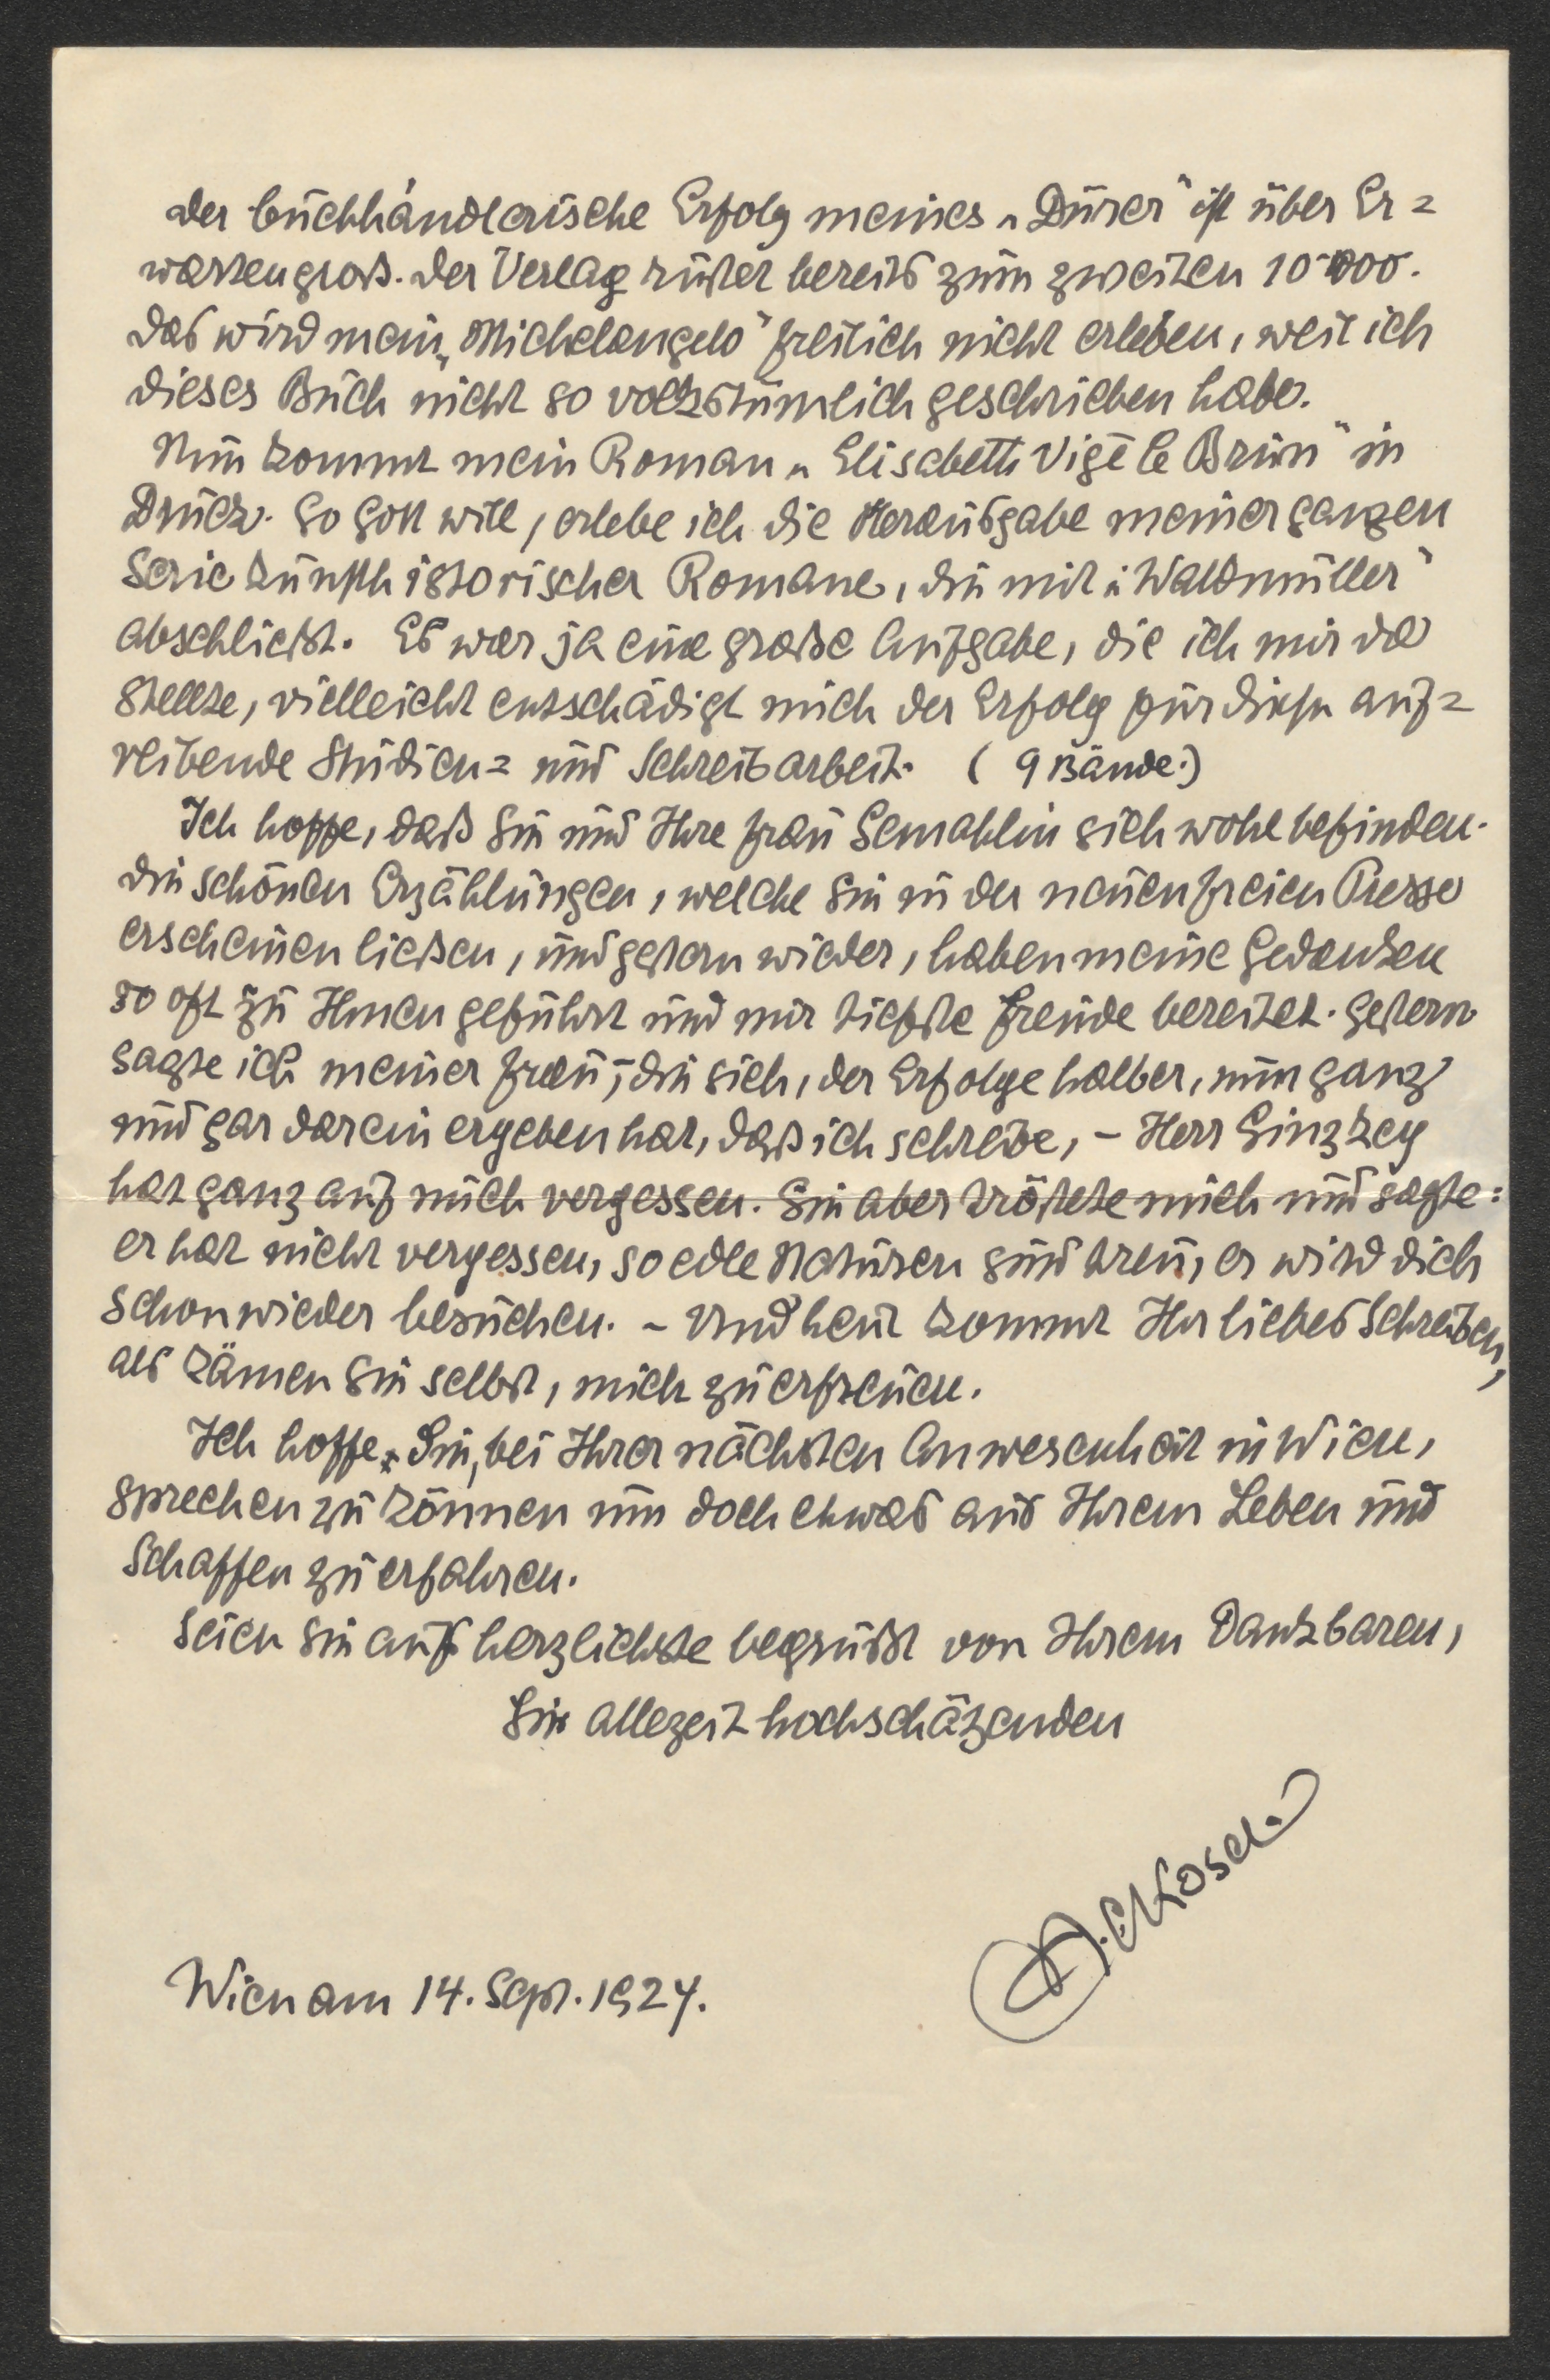 Der buchhändlerische Erfolg meines „Dürer" ist über Er=
warten groß. Der Verlag rüstet bereits zum zweiten 10·000.
Das wird mein „Michelangelo" freilich nicht erleben, weil ich
dieses Buch nicht so volkstümlich geschrieben habe.
Nun kommt mein Roman „Elisabeth Vigé le Brun" in
Druck. So Gott will, erlebe ich die Herausgabe meiner ganzen
Serie kunsthistorischer Romane, die mit „Waldmüller"
abschließt. Es war ja eine große Aufgabe, die ich mir da
stellte, vielleicht entschädigt mich der Erfolg für diese auf=
reibende Studien= und Schreibarbeit. (9 Bände.)
Ich hoffe, daß Sie und Ihre Frau Gemahlin sich wohl befinden.
Die schönen Erzählungen, welche Sie in der neuen freien Presse
erscheinen ließen, und gestern wieder, haben meine Gedanken
so oft zu Ihnen geführt und mir tiefste Freude bereitet. Gestern
sagte ich meiner Frau, die sich, der Erfolge halber, nun ganz
und gar darein ergeben hat, daß ich schreibe, – Herr Ginzkey
hat ganz auf mich vergessen. Sie aber tröstete mich und sagte:
er hat nicht vergessen, so edle Naturen sind treu, er wird dich
schon wieder besuchen. – Und heut kommt Ihr liebes Schreiben,
als kämen Sie selbst, mich zu erfreuen.
Ich hoffe, Sie, bei Ihrer nächsten Anwesenheit in Wien,
sprechen zu können um doch etwas aus Ihrem Leben und
Schaffen zu erfahren.
Seien Sie aufs herzlichste begrüßt von Ihrem Dankbaren,
Sie allezeit hochschätzenden
A. E. Kosel.
Wien am 14. Sept. 1924.